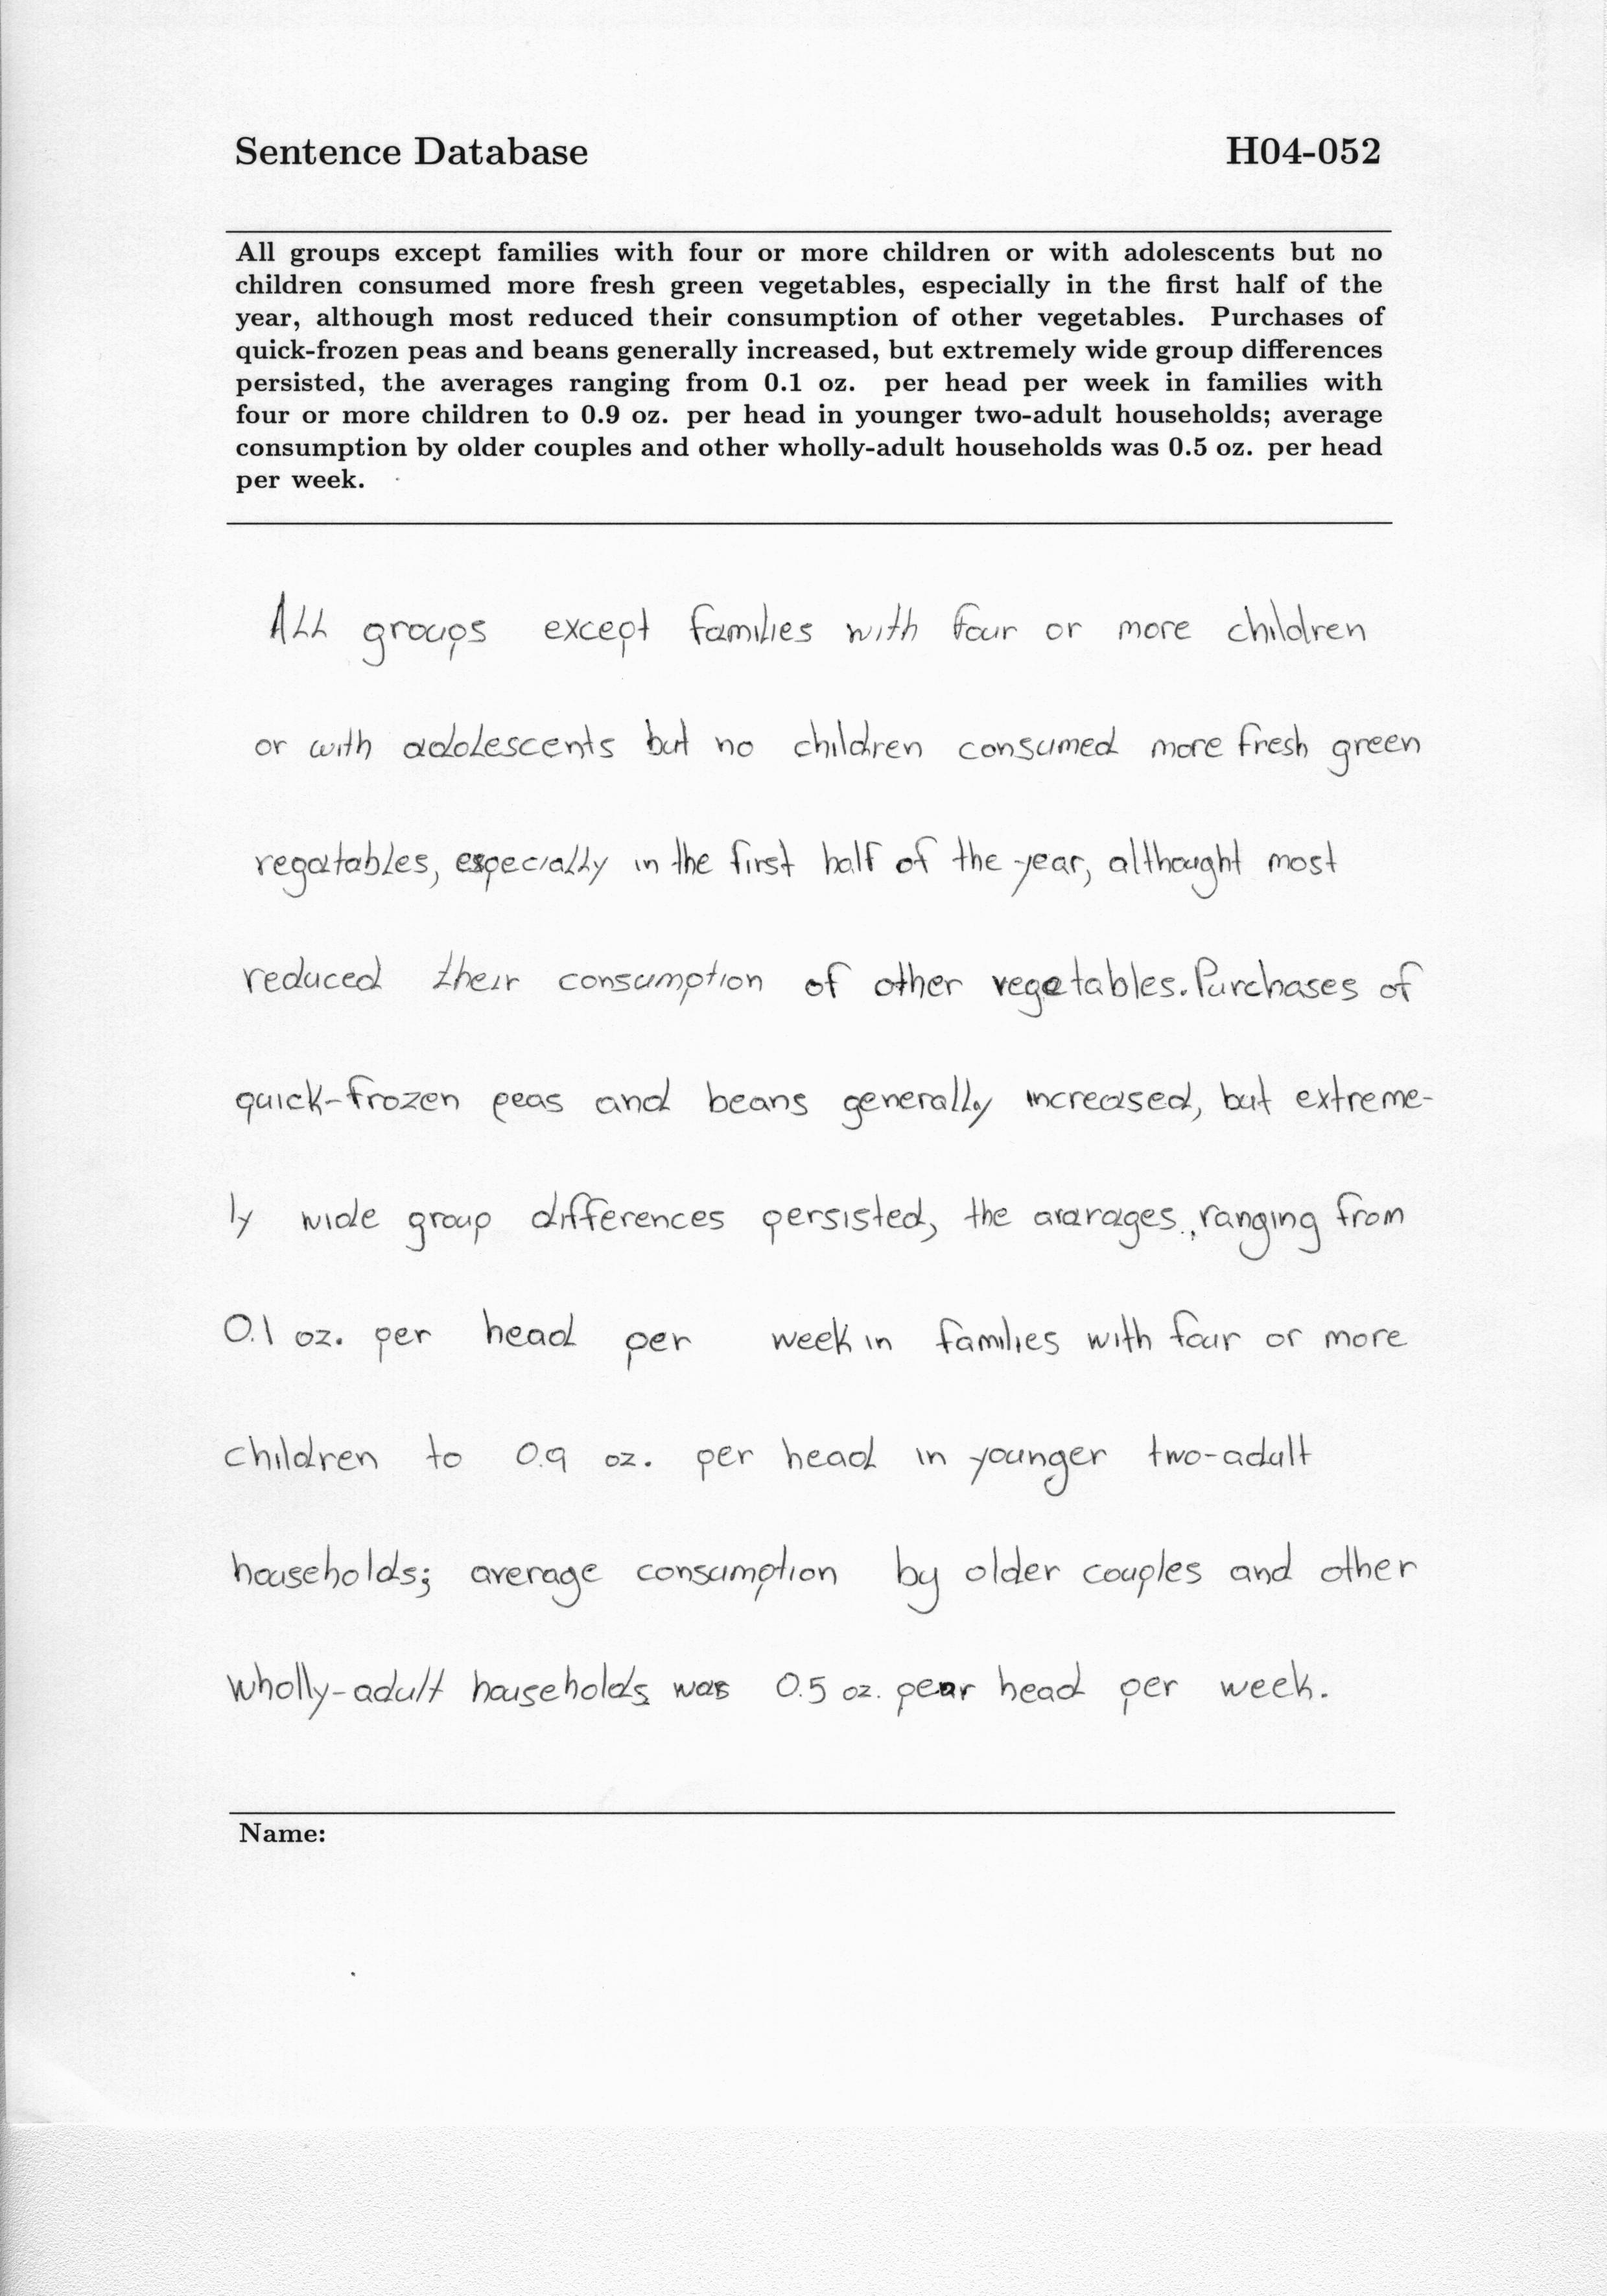 Sentence Database H04-052
All groups except families with four or more children or with adolescents but no
children consumed more fresh green vegetables, especially in the first half of the
year, although most reduced their consumption of other vegetables. Purchases of
quick-frozen peas and beans generally increased, but extremely wide group differences
persisted, the averages ranging from 0.1 oz. per head per week in families with
four or more children to 0.9 oz. per head in younger two-adult households; average
consumption by older couples and other wholly-adult households was 0.5 oz. per head
per week.
All groups except families with four or more children
or with adolescents but no children consumed more fresh green
vegatables, especially in the first half of the year, althought most
reduced their consumption of other vegetables. Purchases of
quick-frozen peas and beans generally increased, but extreme-
ly wide group differences persisted, the avarages, ranging from
0.1 oz. per head per week in families with four or more
children to 0.9 oz. per head in younger two-adult
households; average consumption by older couples and other
wholly-adult households was 0.5 oz. pear head per week.
Name: